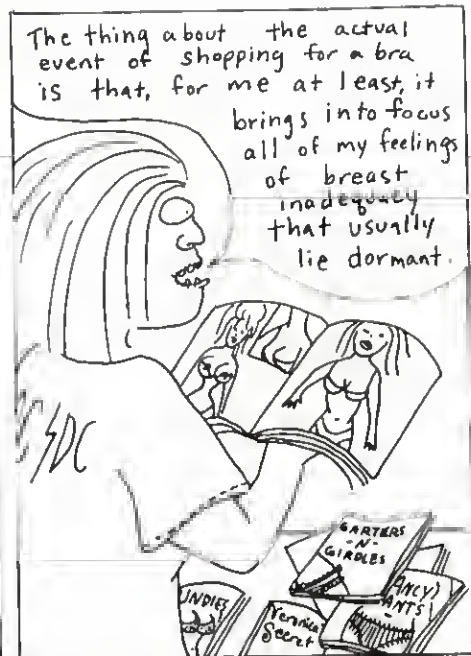 The thing about the actual
event of shopping for a bra
is that, for me at least, it
brings into focus
all of my feelings
of breast
inadequacy
that usually
lie dormant.
SDC
GARTERS
-N-
GIRDLES
UNDIES
Veronica's
Secret
ANCY
ANTS